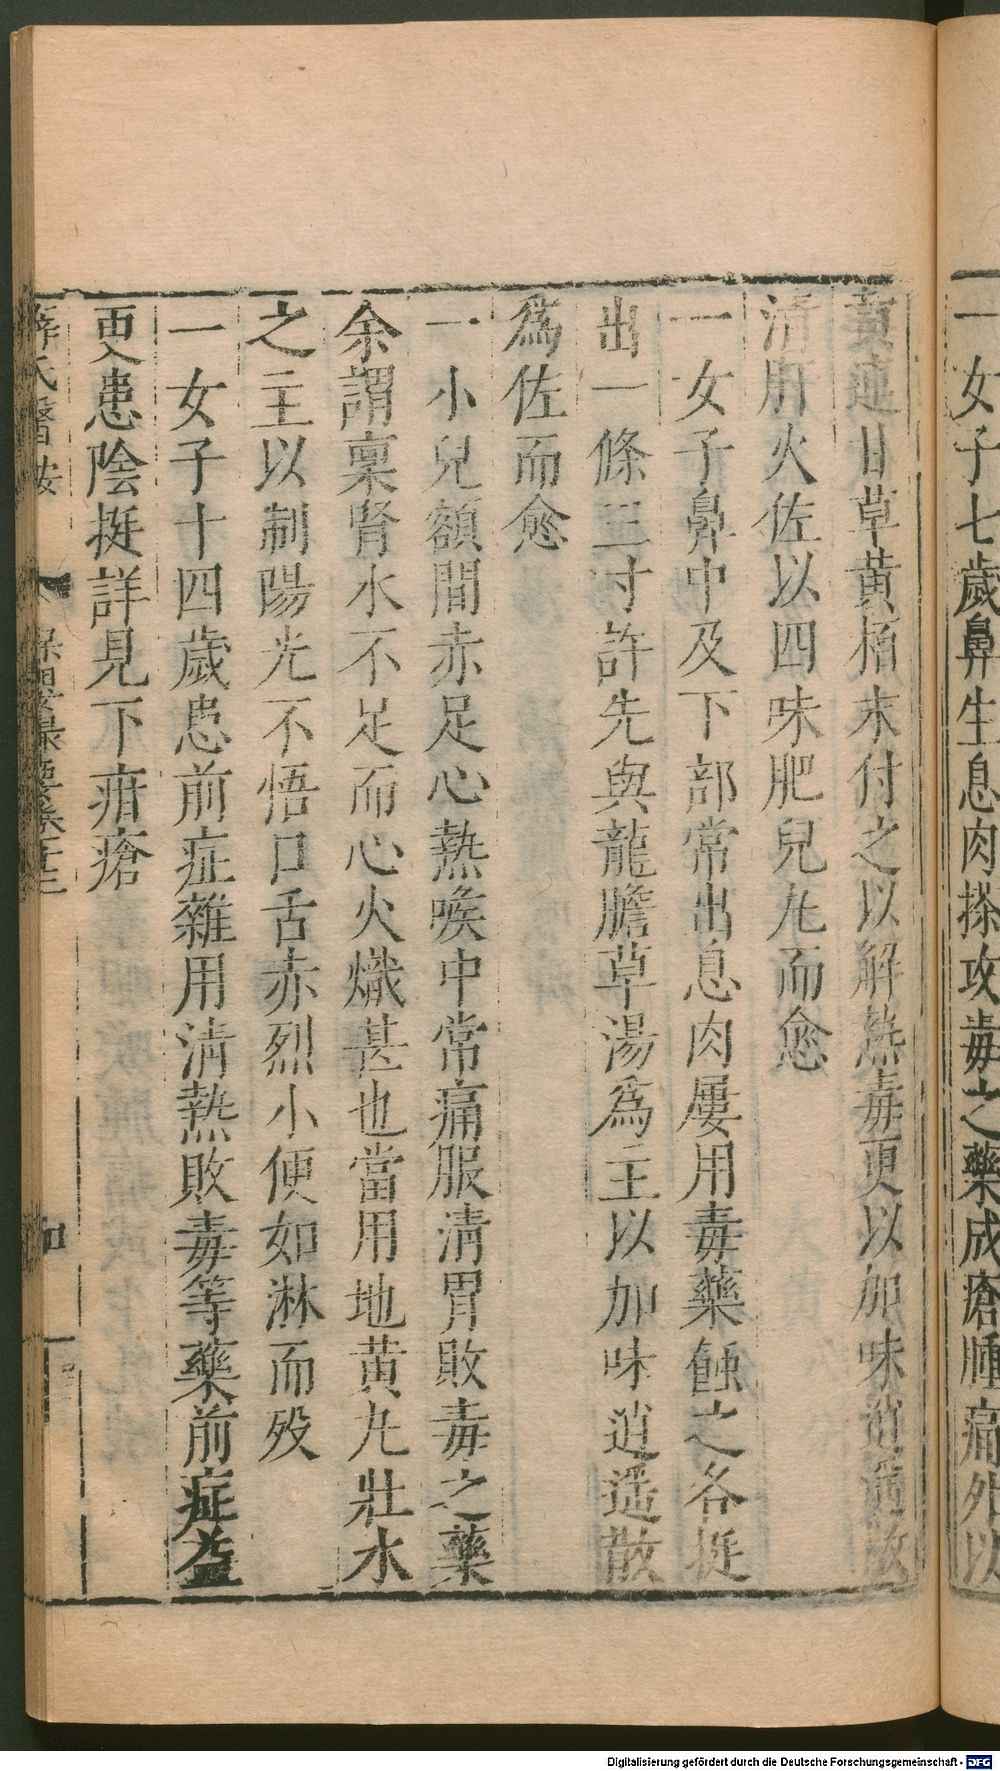 一女子七歲鼻生息肉搽攻毒之藥成瘡腫痛外以
黄連甘草黄栢末付之以解熱毒更以加味逍遥散
清肝火佐以四味肥兒九而愈
一女子鼻中及下部常出息肉屢用毒藥蝕之各挺
出一條三寸許先與龍膽草湯爲主以加味逍遥散
爲佐而愈
一小兒額間赤足心熱喉中常痛服清胃敗毒之藥
余謂稟腎水不足而心火熾甚也當用地黄九壯水
之主以制陽光不悟口舌赤烈小便如淋而歿
一女子十四歲患前症雜用清熱敗毒等藥前症益
更患陰挺詳見下疳瘡
薛氏醫按
保嬰撮要卷十三
四
Digitalisierung gefördert durch die Deutsche Forschungsgemeinschaft - DFG